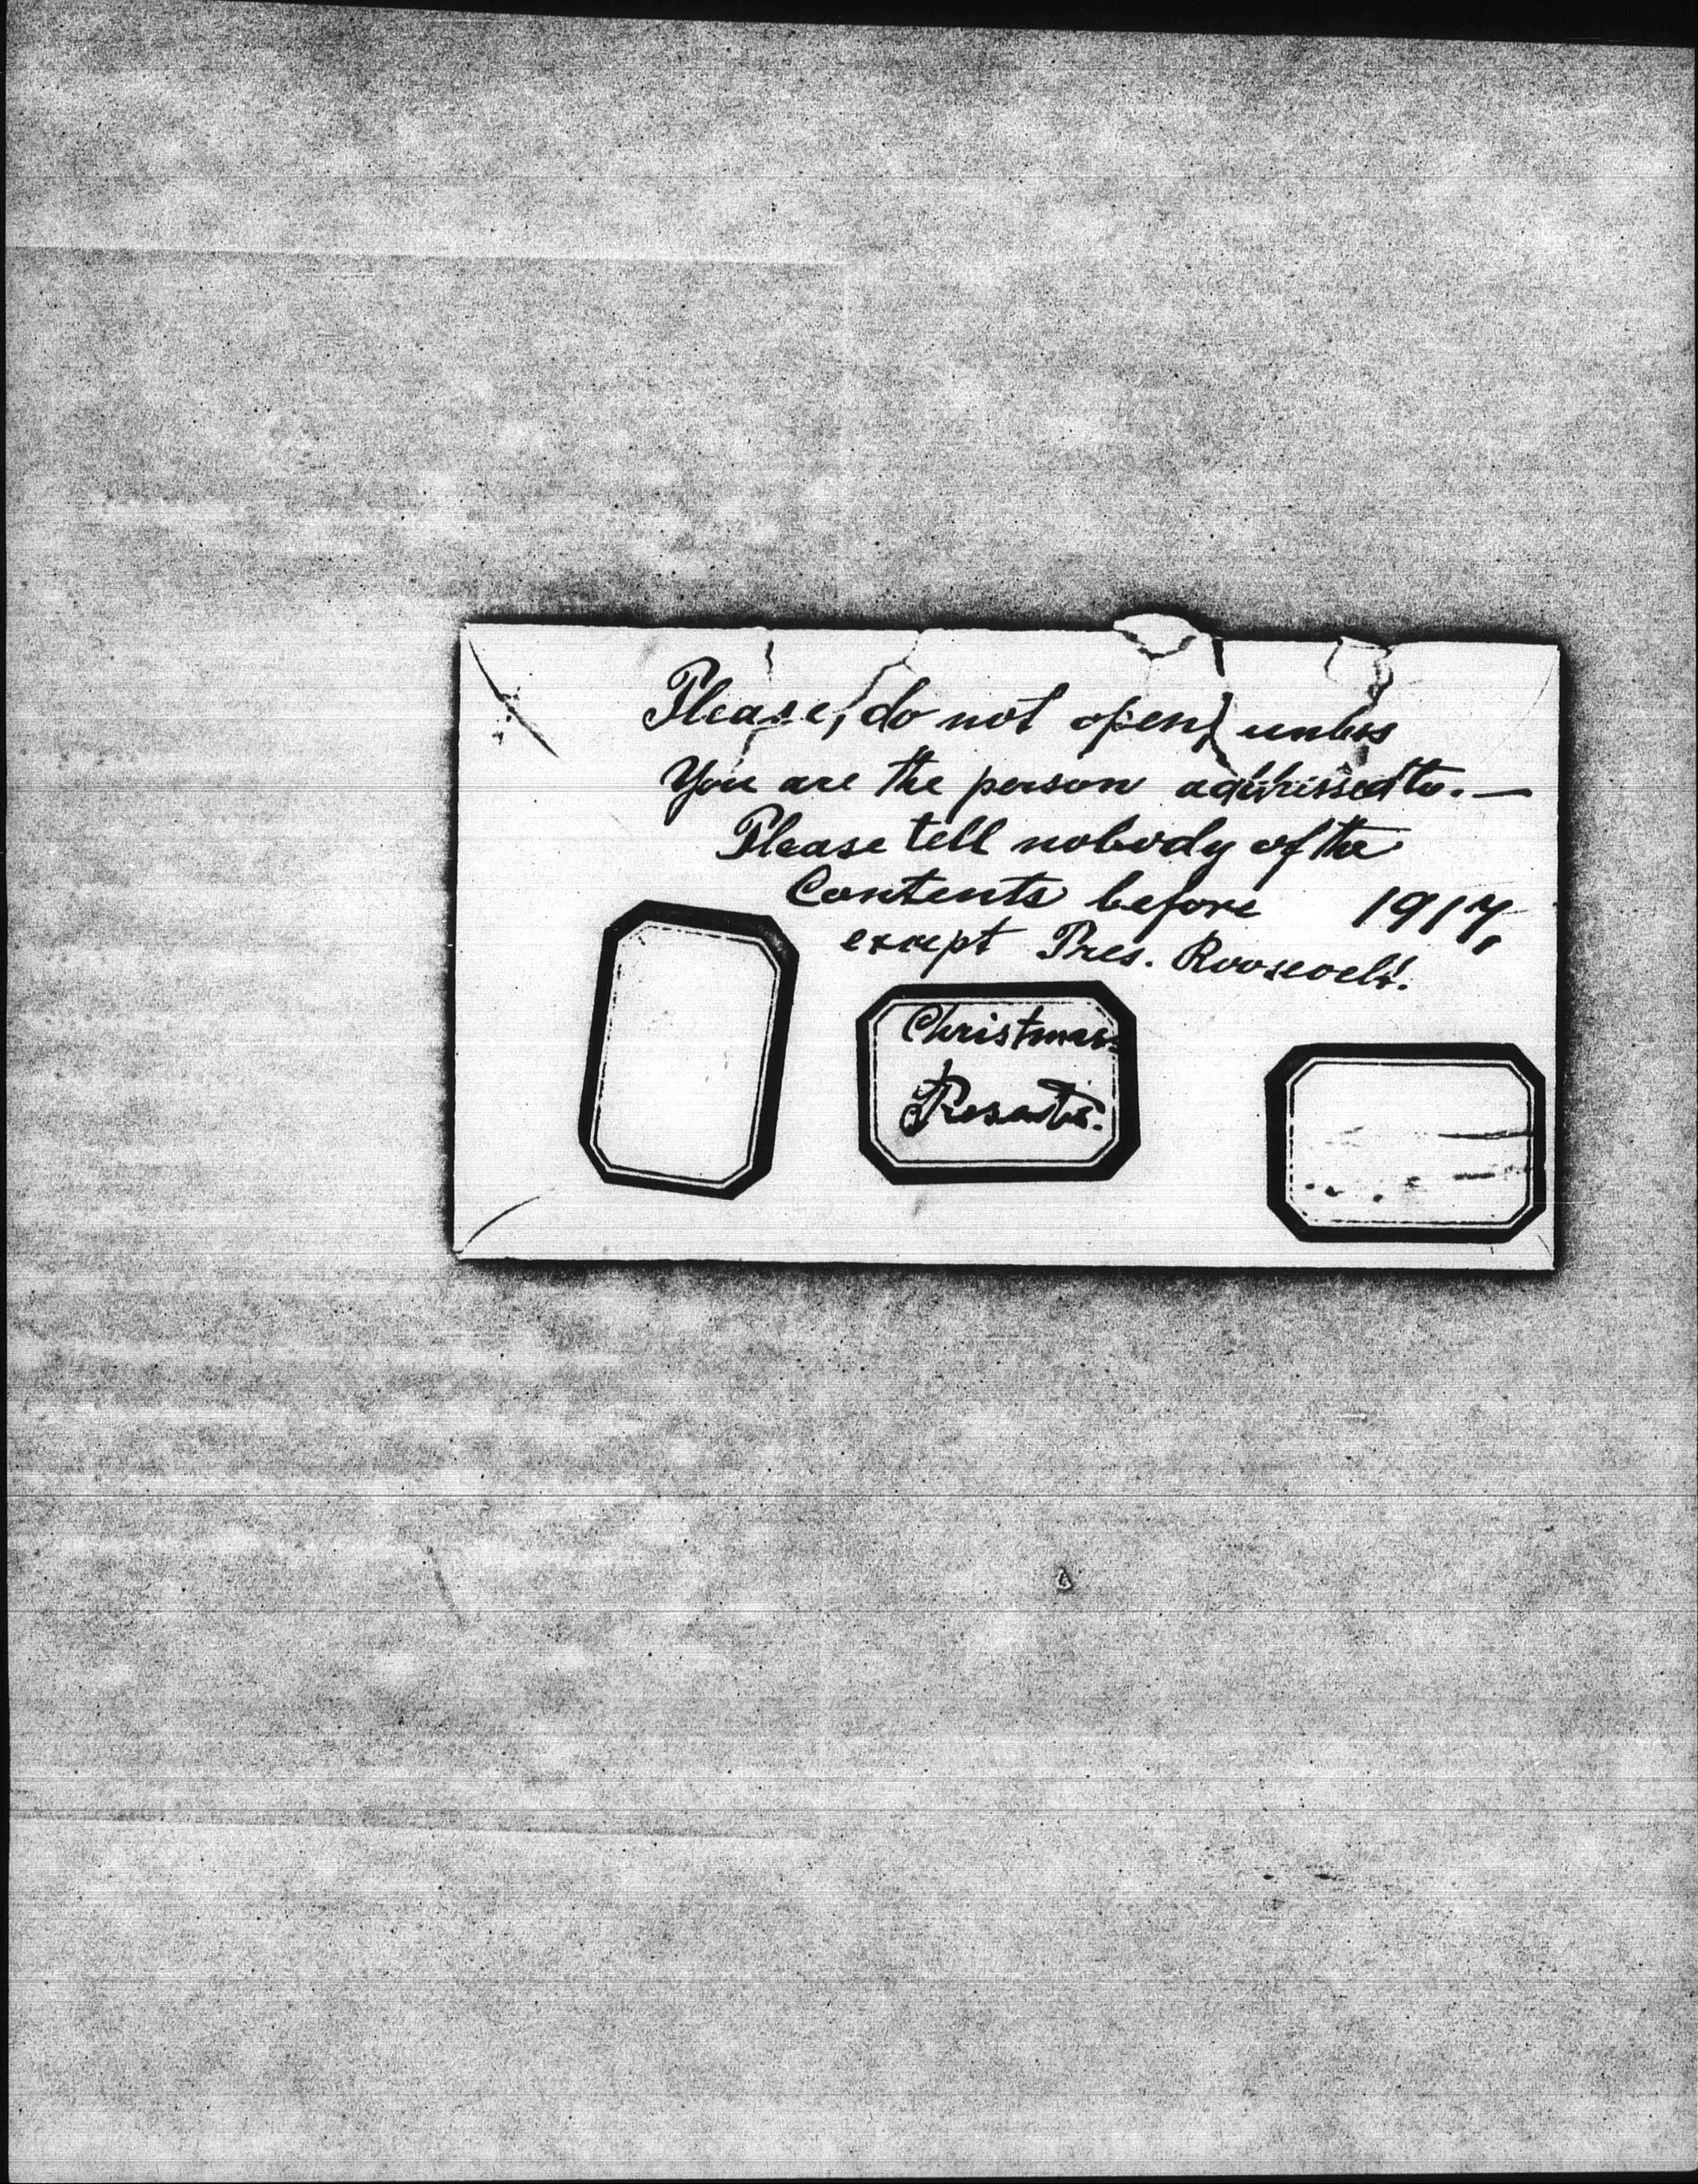 Please, do not open, unless
You are the person addressed to. —
Please tell nobody of the
Contents before 1917,
except Pres. Roosevelt!
Christmas
Presents.